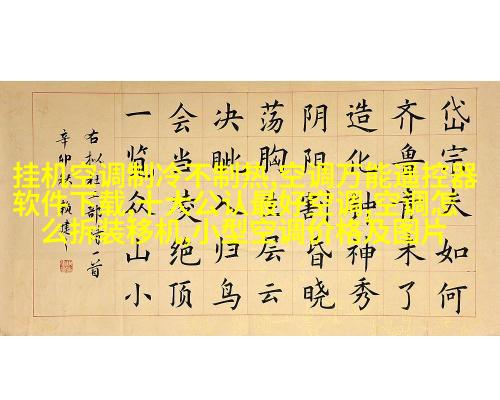 挂机空调制冷不制热,空调万能遥控器
软件下载,十大公认最好空调,空调怎
么拆装移机,小型空调价格及图片
岱宗夫如何
齐鲁青未了
造化钟神秀
阴阳割昏晓
荡胸生层云
决眦入归鸟
会当凌绝顶
一览众山小
右拟杜工部诗一首
辛卯秋